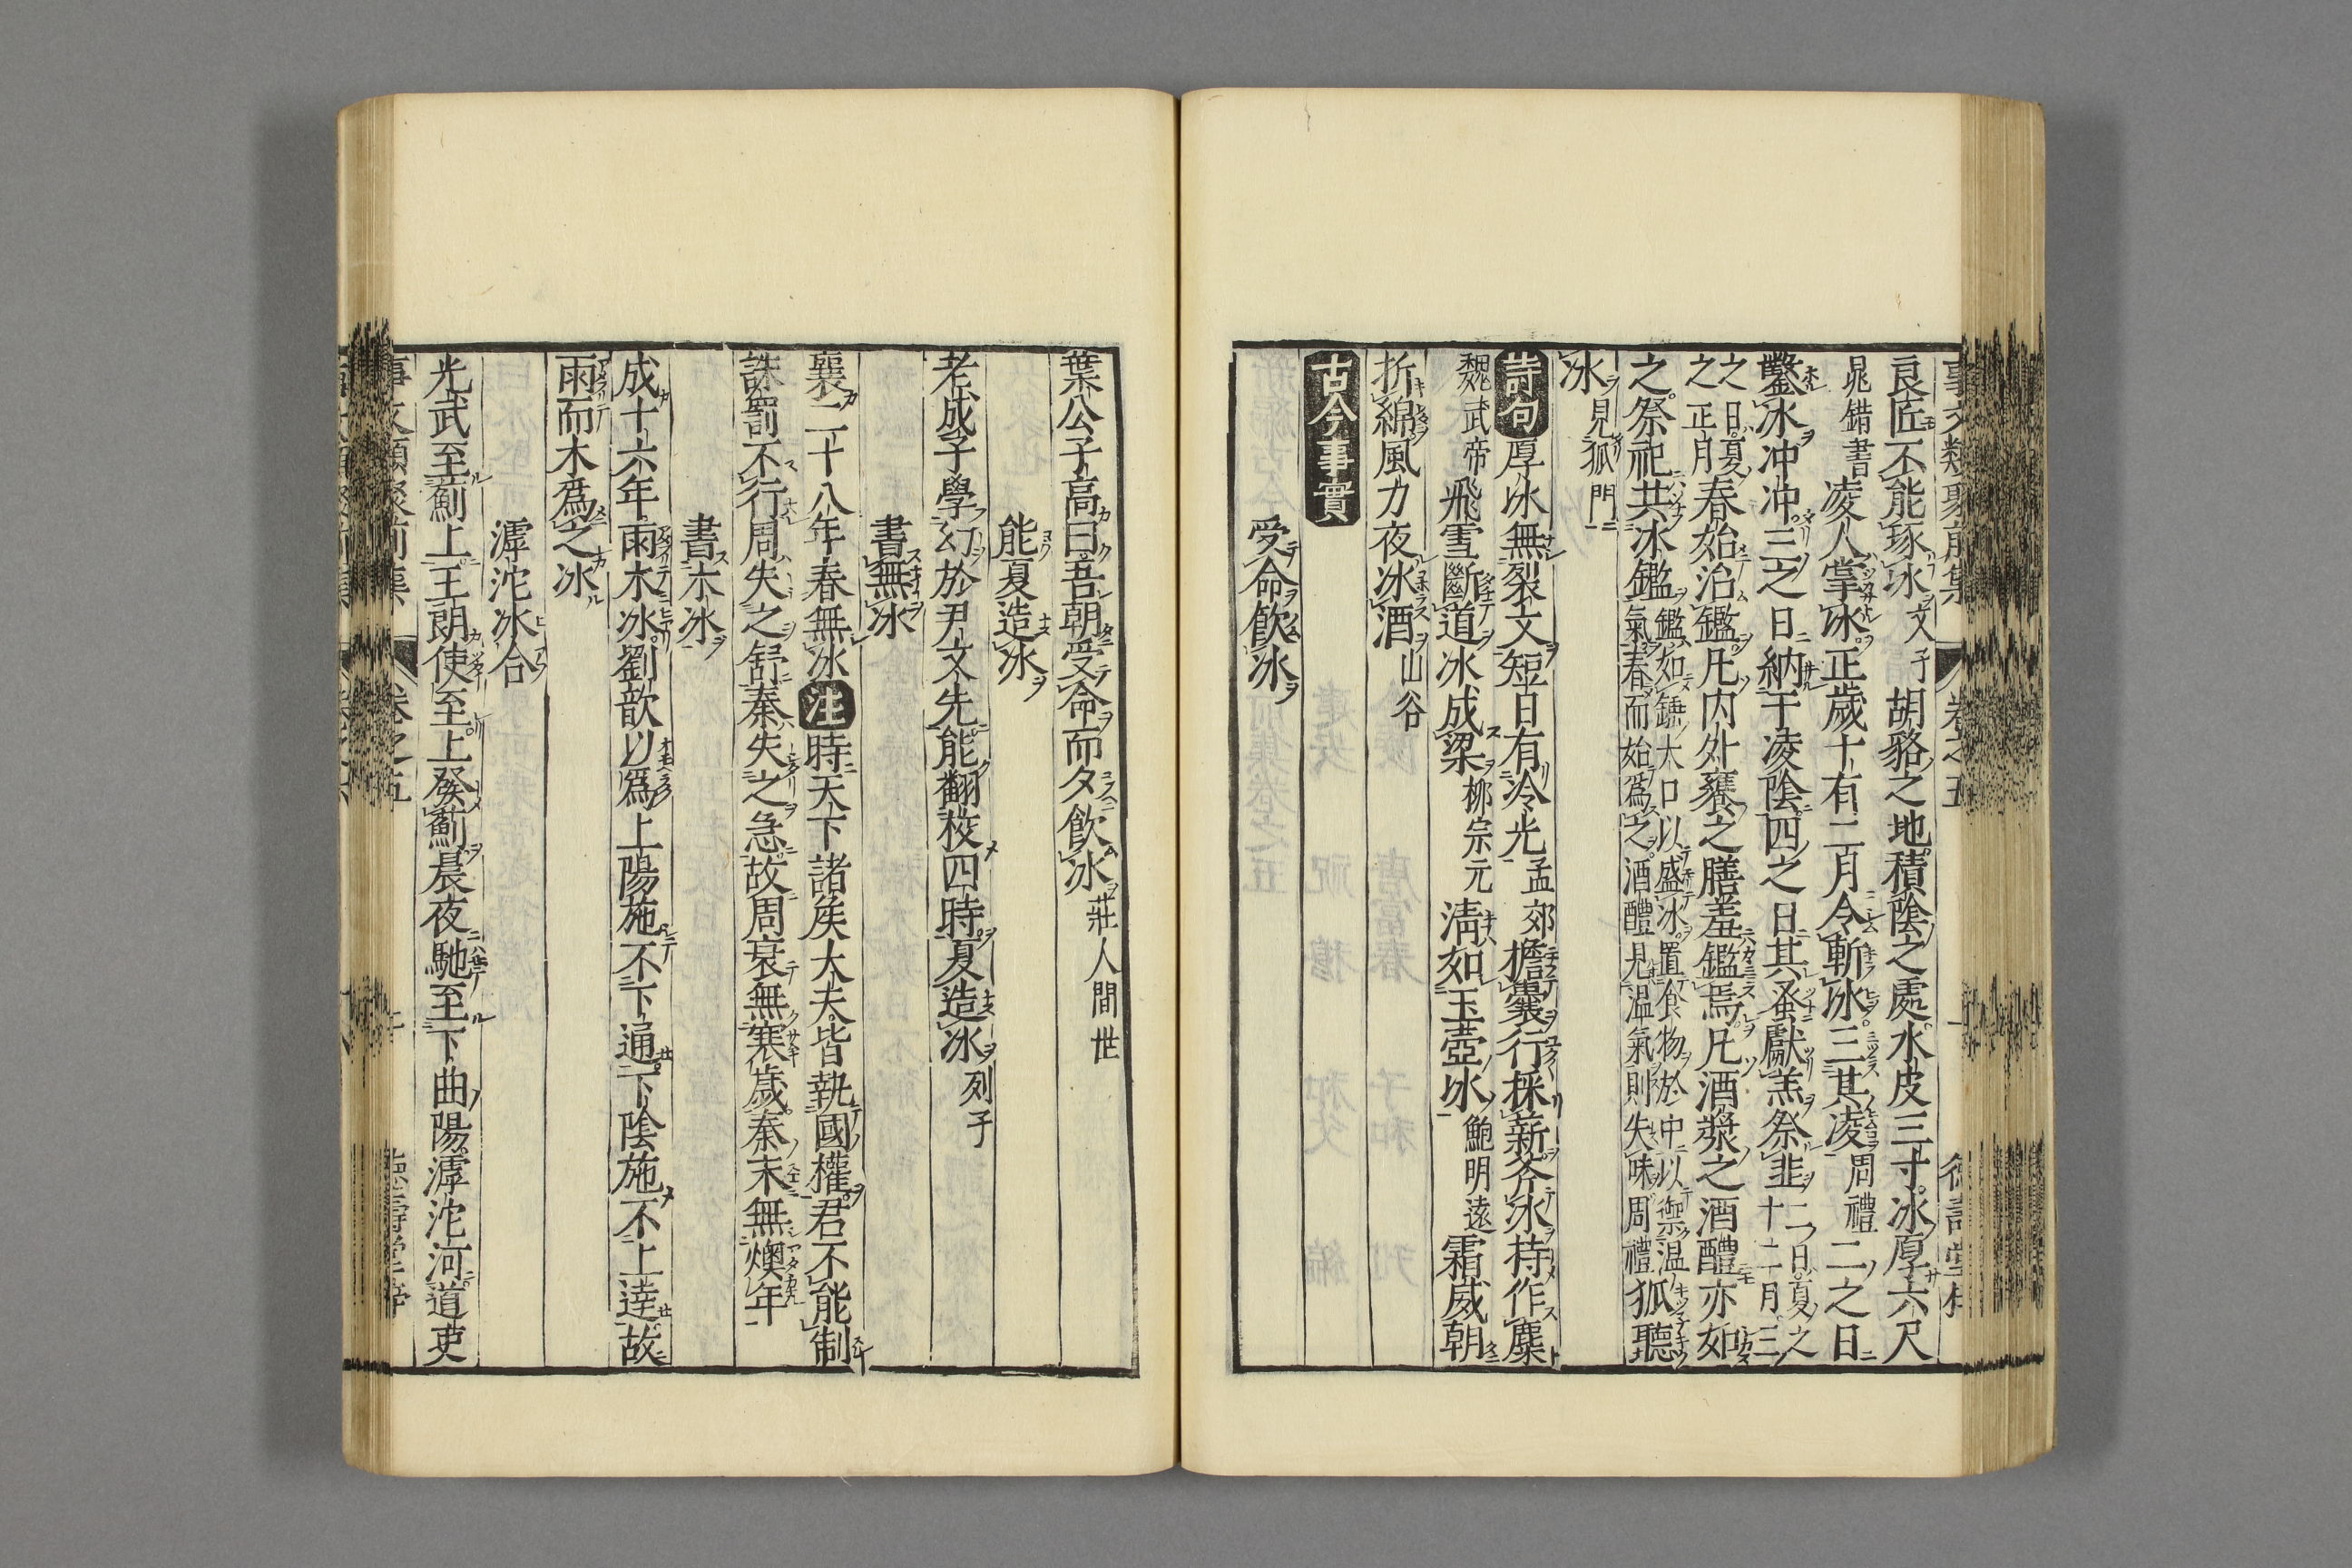 事文類聚前集 卷之五
良匠不能琢冰文子胡貉之地積陰之處水皮三寸冰厚六尺
晁錯書凌人掌冰正歲十有二月令斬冰三其凌周禮二之日
鑿冰冲冲三之日納于凌陰四之日其蚤獻羔祭韭二之日夏之十二月三
之日夏之正月春始治鑑凡內外饔之膳羞鑑焉凡酒漿之酒醴亦如
之祭祀共冰鑑鑑如甀大口以盛冰置食物於中以禦温氣春而始爲之酒醴見温氣則失味周禮狐聽
冰見狐門
詩句厚冰無裂文短日有冷光孟郊擔囊行採薪斧冰持作麋
魏武帝飛雪斷道冰成梁柳宗元淸如玉壺冰鮑明遠霜威朝
折綿風力夜冰酒山谷
古今事實
受命飲冰
葉公子高曰吾朝受命而夕飲冰莊人間世
能夏造冰
老成子學幻於尹文先能翻校四時夏造冰列子
書無冰
襄二十八年春無冰注時天下諸侯大夫皆執國權君不能制
誅罰不行周失之舒秦失之急故周衰無寒歲秦末無燠年
書木冰
成十六年雨木冰劉歆以爲上陽施不下通下陰施不上達故
雨而木爲之冰
滹沱冰合
光武至薊上王朗使至上發薊晨夜馳至下曲陽滹沱河道吏
事文類聚前集 卷之五